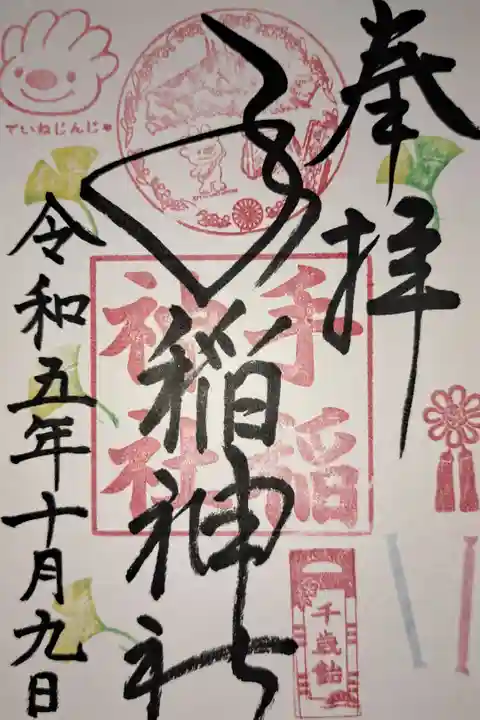 奉拝
手稲神社
手稲神社
令和五年十月九日
ていねじんじゃ
千歳飴